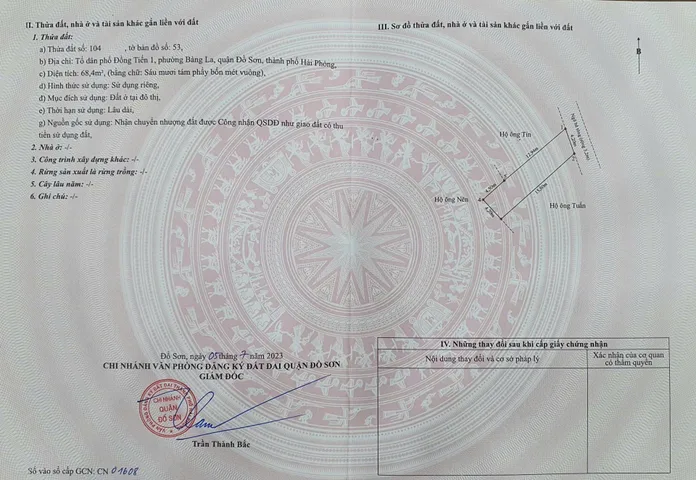 II. Thửa đất, nhà ở và tài sản khác gắn liền với đất
1. Thửa đất:
a) Thửa đất số: 104 , tờ bản đồ số: 53,
b) Địa chỉ: Tổ dân phố Đồng Tiến 1, phường Bàng La, quận Đồ Sơn, thành phố Hải Phòng,
c) Diện tích: 68,4m², (bằng chữ: Sáu mươi tám phẩy bốn mét vuông),
d) Hình thức sử dụng: Sử dụng riêng,
đ) Mục đích sử dụng: Đất ở tại đô thị,
e) Thời hạn sử dụng: Lâu dài,
g) Nguồn gốc sử dụng: Nhận chuyển nhượng đất được Công nhận QSDĐ như giao đất có thu
tiền sử dụng đất,
2. Nhà ở: -/-
3. Công trình xây dựng khác: -/-
4. Rừng sản xuất là rừng trồng: -/-
5. Cây lâu năm: -/-
6. Ghi chú: -/-
Đồ Sơn, ngày 05 tháng 7 năm 2023
CHI NHÁNH VĂN PHÒNG ĐĂNG KÝ ĐẤT ĐAI QUẬN ĐỒ SƠN
GIÁM ĐỐC
CHI NHÁNH
QUẬN
ĐỒ SƠN
Trần Thành Bắc
Số vào sổ cấp GCN: CN 01608
III. Sơ đồ thửa đất, nhà ở và tài sản khác gắn liền với đất
B
Hộ ông Tin
Hộ ông Nên
Hộ ông Tuấn
IV. Những thay đổi sau khi cấp giấy chứng nhận
Nội dung thay đổi và cơ sở pháp lý
Xác nhận của cơ quan
có thẩm quyền